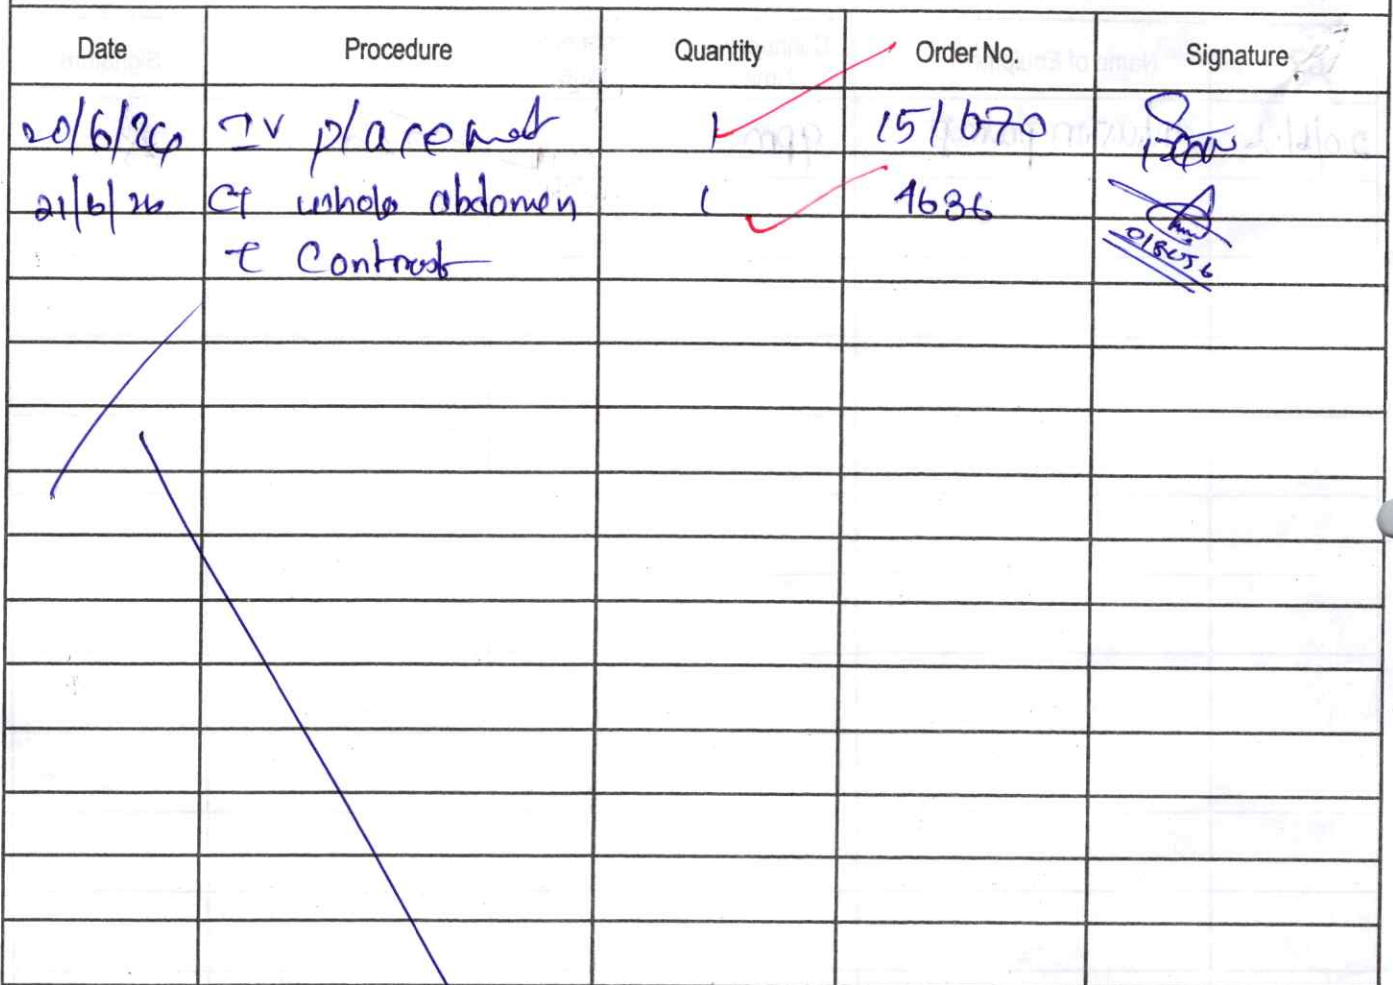 Date Procedure Quantity Order No. Signature
20/6/26 IV placement 1 151670
21/6/26 CT whole abdomen 1 4636
c Contrast
018056